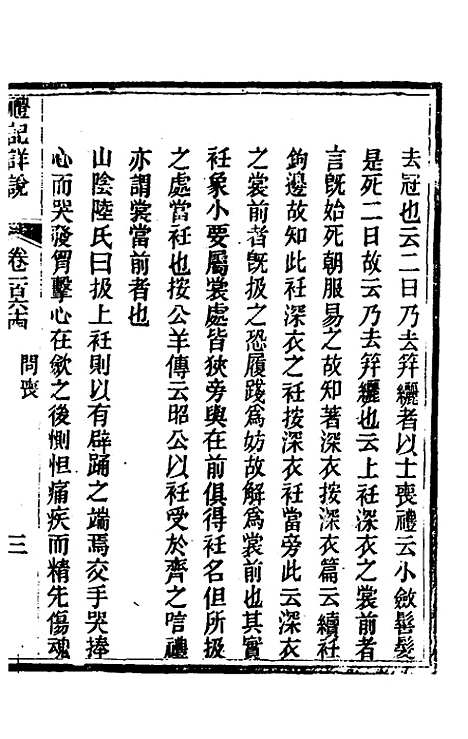 去冠也云二日乃去筓纚者以士喪禮云小斂髻髮
是死二日故云乃去筓纚也云上衽深衣之裳前者
言旣始死朝服易之故知著深衣按深衣篇云續衽
鉤邊故知此衽深衣之衽按深衣衽當旁此云深衣
之裳前者旣扱之恐履踐爲妨故解爲裳前也其實
衽象小要屬裳處皆狹旁與在前俱得衽名但所扱
之處當衽也按公羊傳云昭公以衽受於齊之唁禮
亦謂裳當前者也
山陰陸氏曰扱上衽則以有辟踊之端焉交手哭捧
心而哭發胷擊心在斂之後惻怛痛疾而精先傷魂
禮記詳說
卷一百六十四
問喪
三